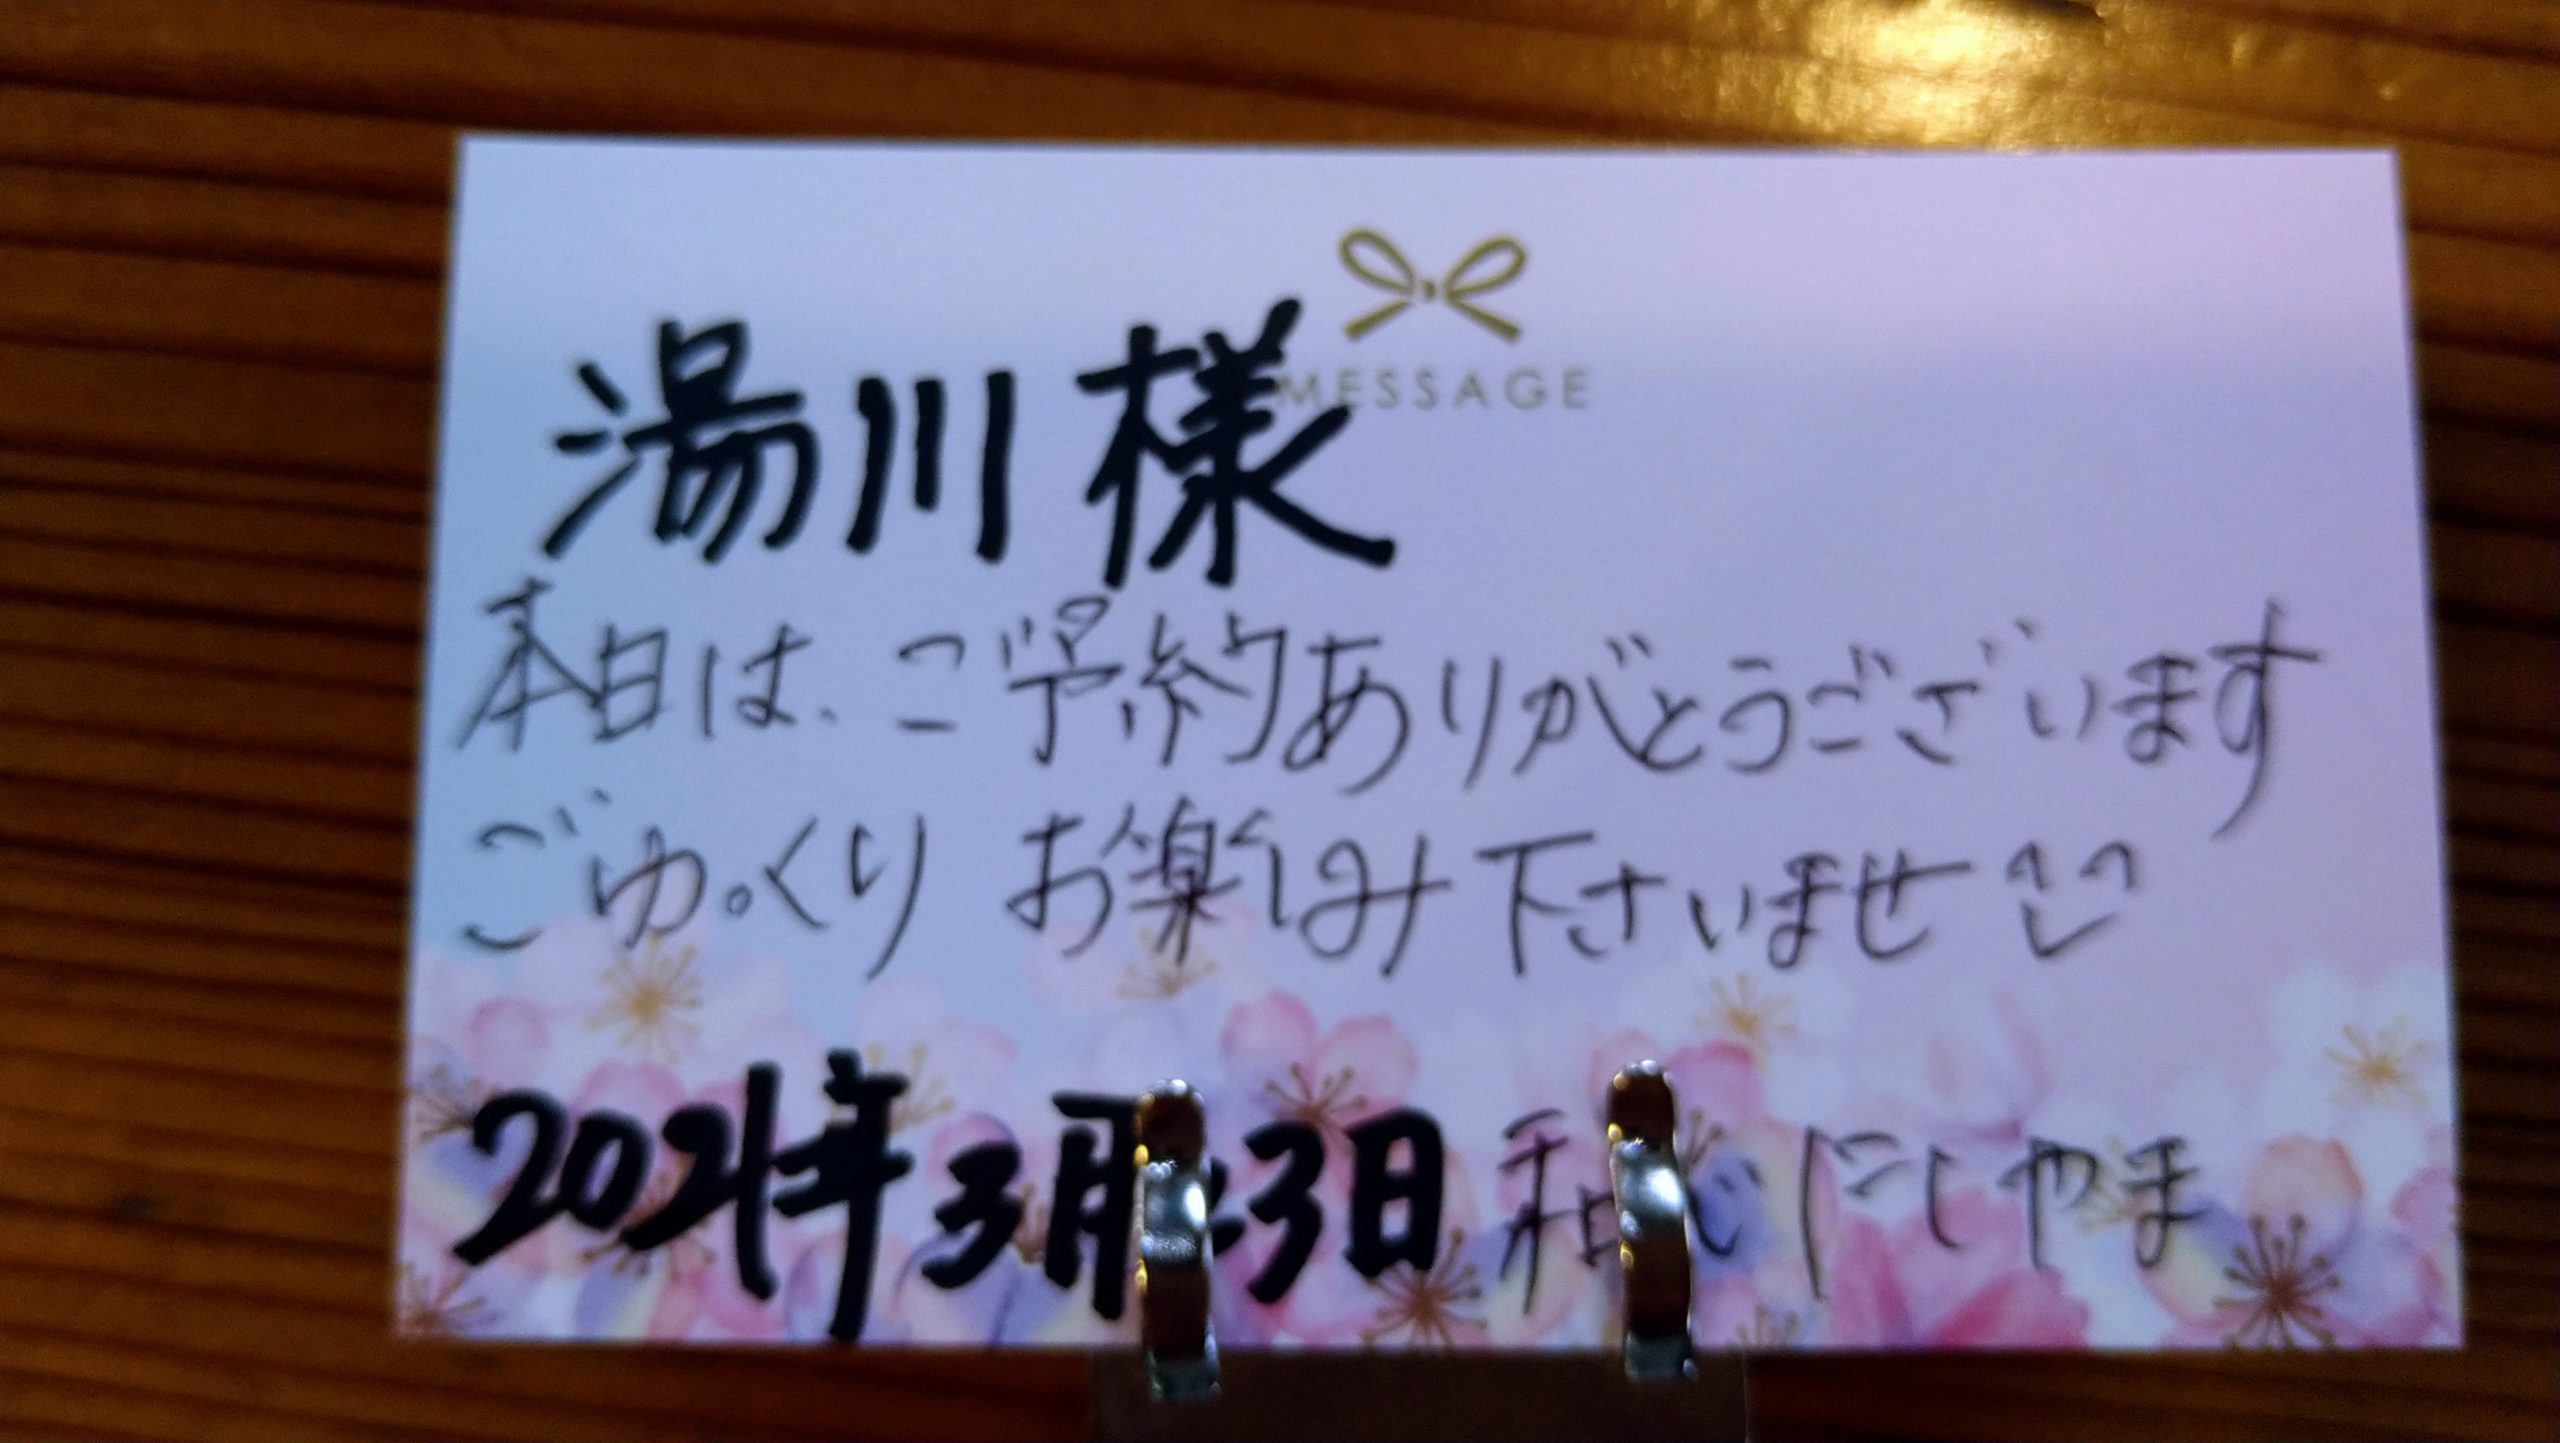 MESSAGE
湯川様
本日は、ご予約ありがとうございます
ごゆっくりお楽しみ下さいませ
2024年3月23日 にしやま